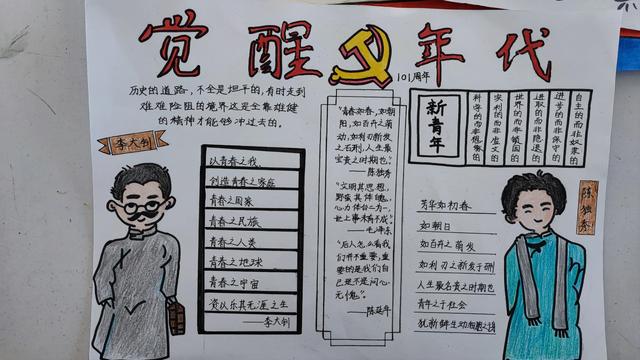 觉醒年代
101周年
历史的道路，不全是坦平的，有时走到
艰难险阻的境界这是全靠雄健
的精神才能够冲过去的。
李大钊
以青春之我，
创造青春之家庭
青春之国家
青春之民族
青春之人类
青春之地球
青春之宇宙
资以乐其无涯之生
——李大钊
"青春如初春，如朝
阳，如百卉之萌
动，如利刃新发
之石刑，人生最
宝贵之时期也"
——陈独秀
"文明其思想，
野蛮其体魄，
心力体合二为一，
世上事未有不成"
——毛泽东
"后人怎么看我
们并不重要，重
要的是我们自
己是不是问心
无愧"。
——陈延年
新青年
自主的而非奴隶的
进步的而非保守的
进取的而非隐退的
世界的而非锁国的
实利的而非虚文的
科学的而非想象的
陈独秀
芳华如初春
如朝日
如百卉之萌发
如利刃之新发于硎
人生最名贵之时期也
青年之于社会
犹新鲜生动细胞之于身